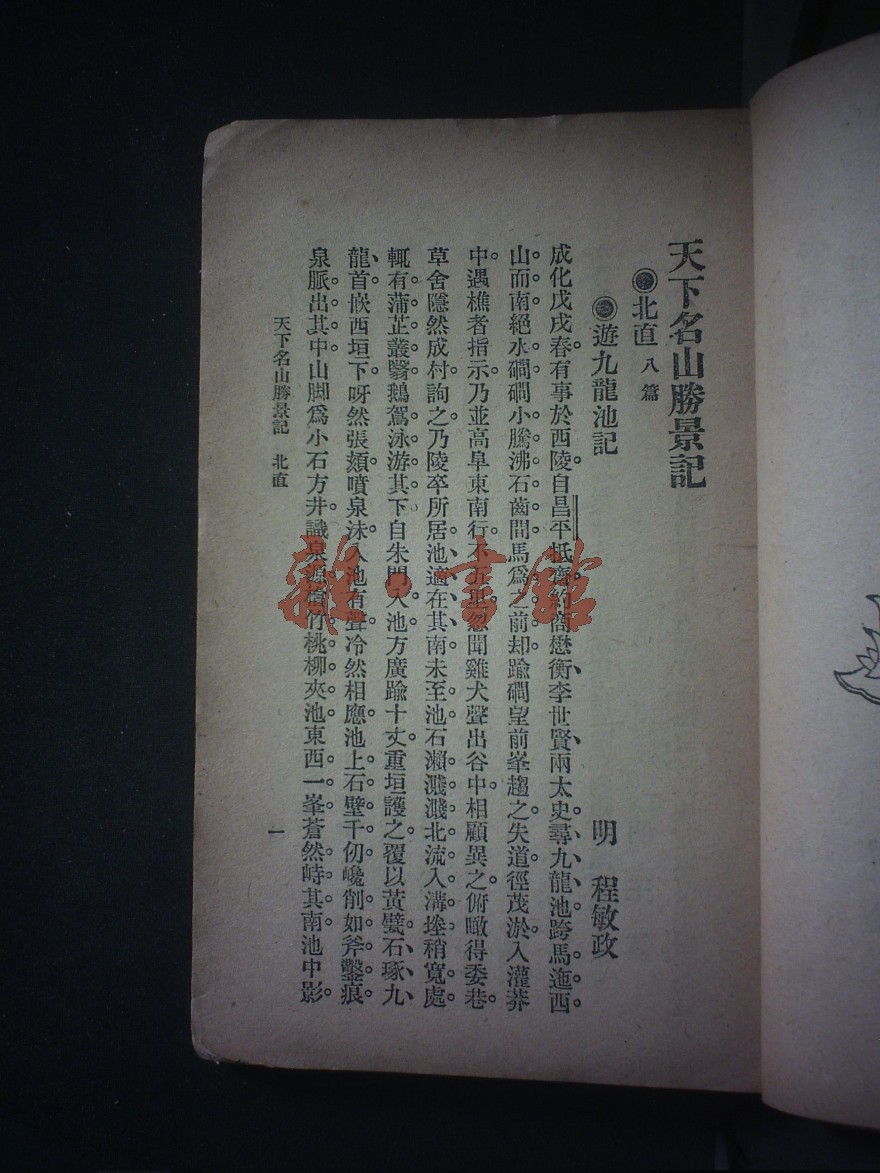 天下名山勝景記
北直 八篇
遊九龍池記
明 程敏政
成化戊戌春有事於西陵自昌平抵齋約喬懋衡李世賢兩太史尋九龍池跨馬迤西
山而南絕水磵磵小騰沸石齒間馬爲之前却踰磵望前峯趨之失道徑茂淤入灌莽
中遇樵者指示乃並高阜東南行不五里忽聞雞犬聲出谷中相顧異之俯瞰得委巷
草舍隱然成村詢之乃陵卒所居池適在其南未至池石瀨濺濺北流入溝塍稍寬處
輒有蒲芷叢翳鵝鴐泳游其下自朱門入池方廣踰十丈重垣護之覆以黃甓石琢九
龍首嵌西垣下呀然張頦噴泉沫入池有聲冷然相應池上石壁千仞巉削如斧鑿痕
泉脈出其中山脚爲小石方井識泉源檜竹桃柳夾池東西一峯蒼然峙其南池中影
天下名山勝景記 北直
一
雜·書館